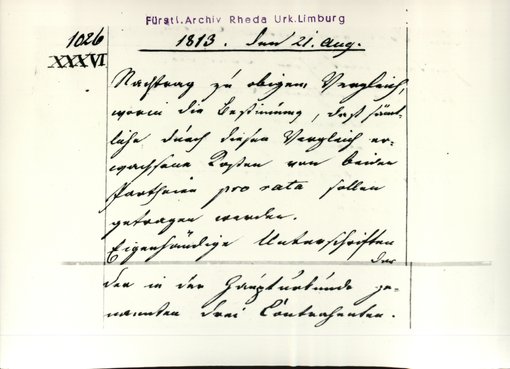 Fürstl. Archiv Rheda Urk. Limburg
1026
XXXVI
1813. den 21. Aug.
Nachtrag zu obigem Vergleich,
worin die Bestimmung, daß sämt-
liche durch diesen Vergleich er-
wachsene Kosten von beiden
Partheien pro rata sollen
getragen werden.
Eigenhändige Unterschriften
der in der Haupturkunde ge-
nannten drei Contrahenten.